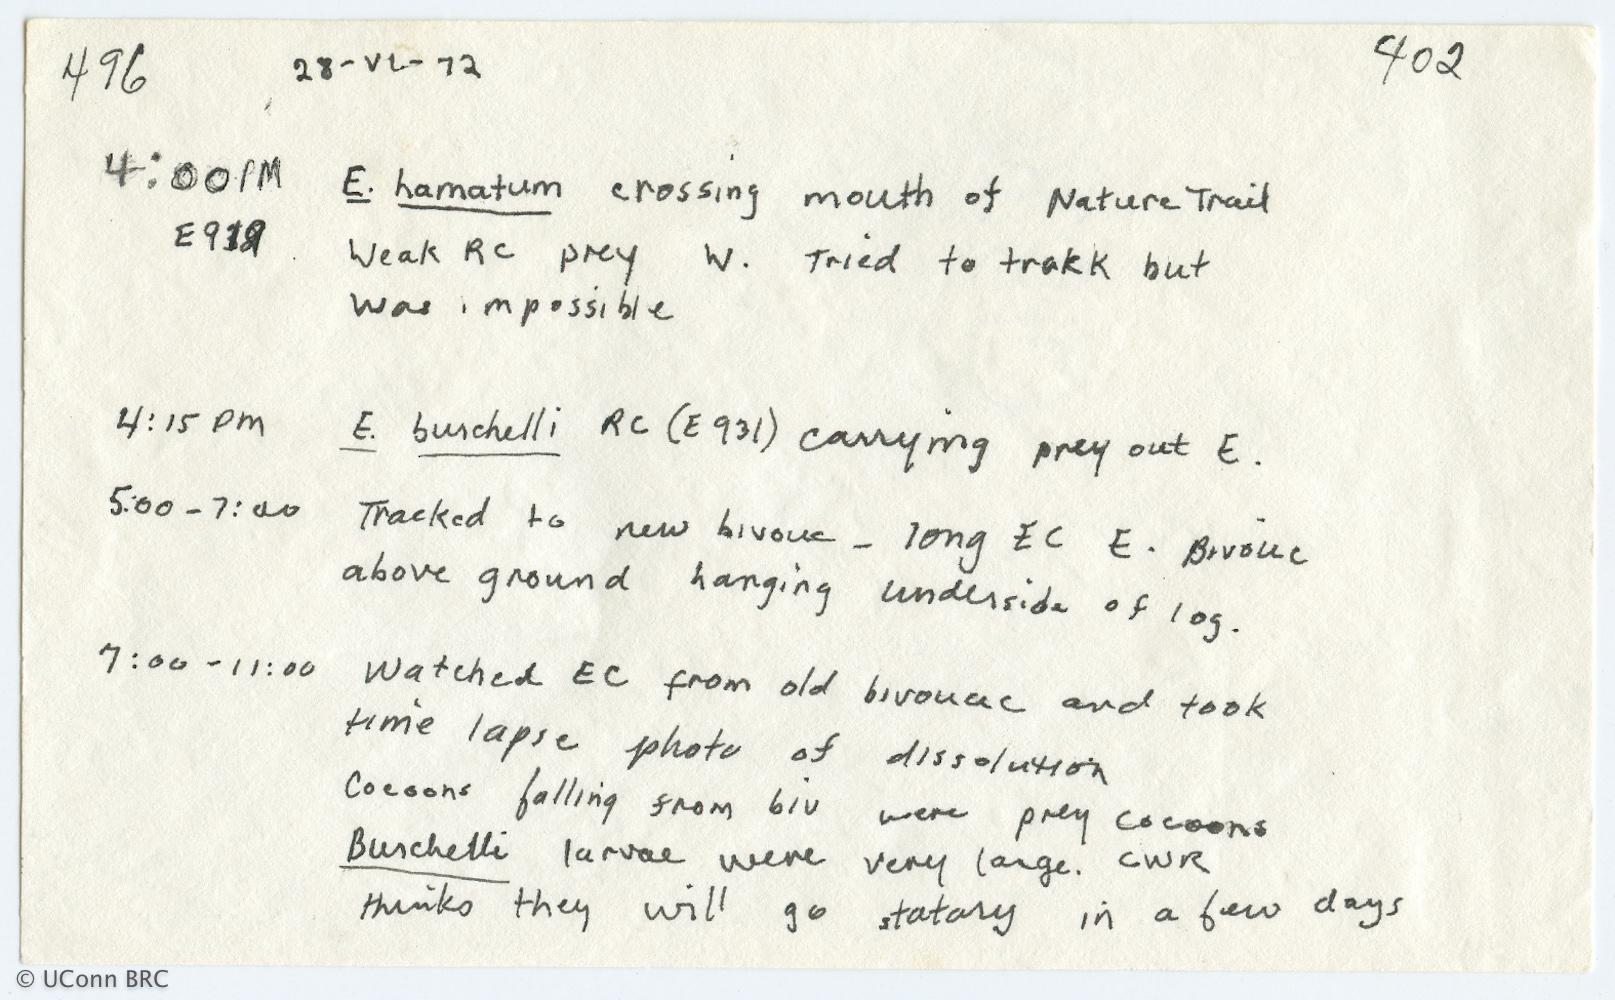 496 28-VI-72 402
4:00 PM E. hamatum crossing mouth of Nature Trail
E 919 Weak RC prey W. Tried to trakk but
was impossible
4:15 PM E. burchelli RC (E 931) carrying prey out E.
5:00-7:00 Tracked to new bivouc - long EC E. Bivouc
above ground hanging underside of log.
7:00-11:00 Watched EC from old bivouac and took
time lapse photo of dissolution
Cocoons falling from biv were prey cocoons
Burchelli larvae were very large. CWR
thinks they will go statary in a few days
© UConn BRC